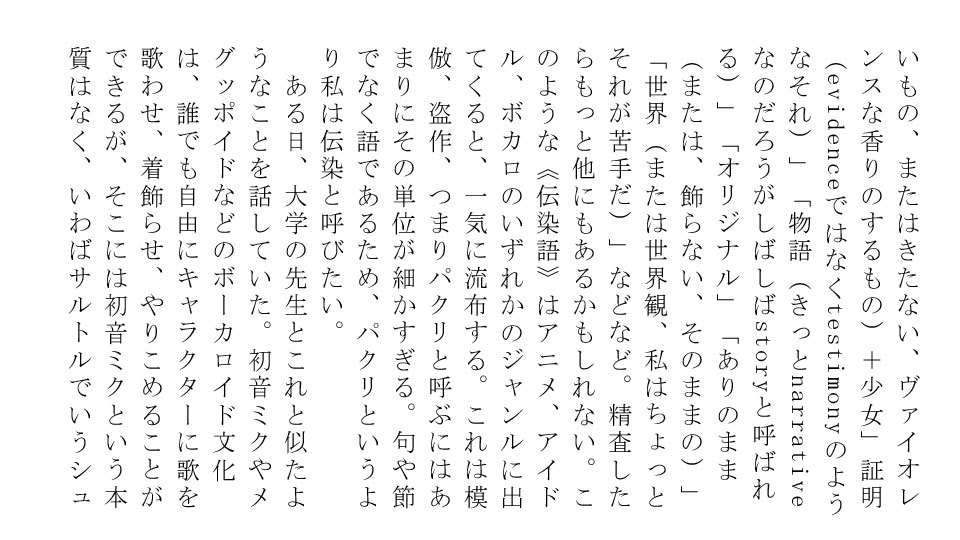 いもの、またはきたない、ヴァイオレ
ンスな香りのするもの）＋少女」証明
（evidenceではなくtestimonyのよう
なそれ）」「物語（きっとnarrative
なのだろうがしばしばstoryと呼ばれ
る）」「オリジナル」「ありのまま
（または、飾らない、そのままの）」
「世界（または世界観、私はちょっと
それが苦手だ）」などなど。精査した
らもっと他にもあるかもしれない。こ
のような《伝染語》はアニメ、アイド
ル、ボカロのいずれかのジャンルに出
てくると、一気に流布する。これは模
倣、盗作、つまりパクリと呼ぶにはあ
まりにその単位が細かすぎる。句や節
でなく語であるため、パクリというよ
り私は伝染と呼びたい。
　ある日、大学の先生とこれと似たよ
うなことを話していた。初音ミクやメ
グッポイドなどのボーカロイド文化
は、誰でも自由にキャラクターに歌を
歌わせ、着飾らせ、やりこめることが
できるが、そこには初音ミクという本
質はなく、いわばサルトルでいうシュ